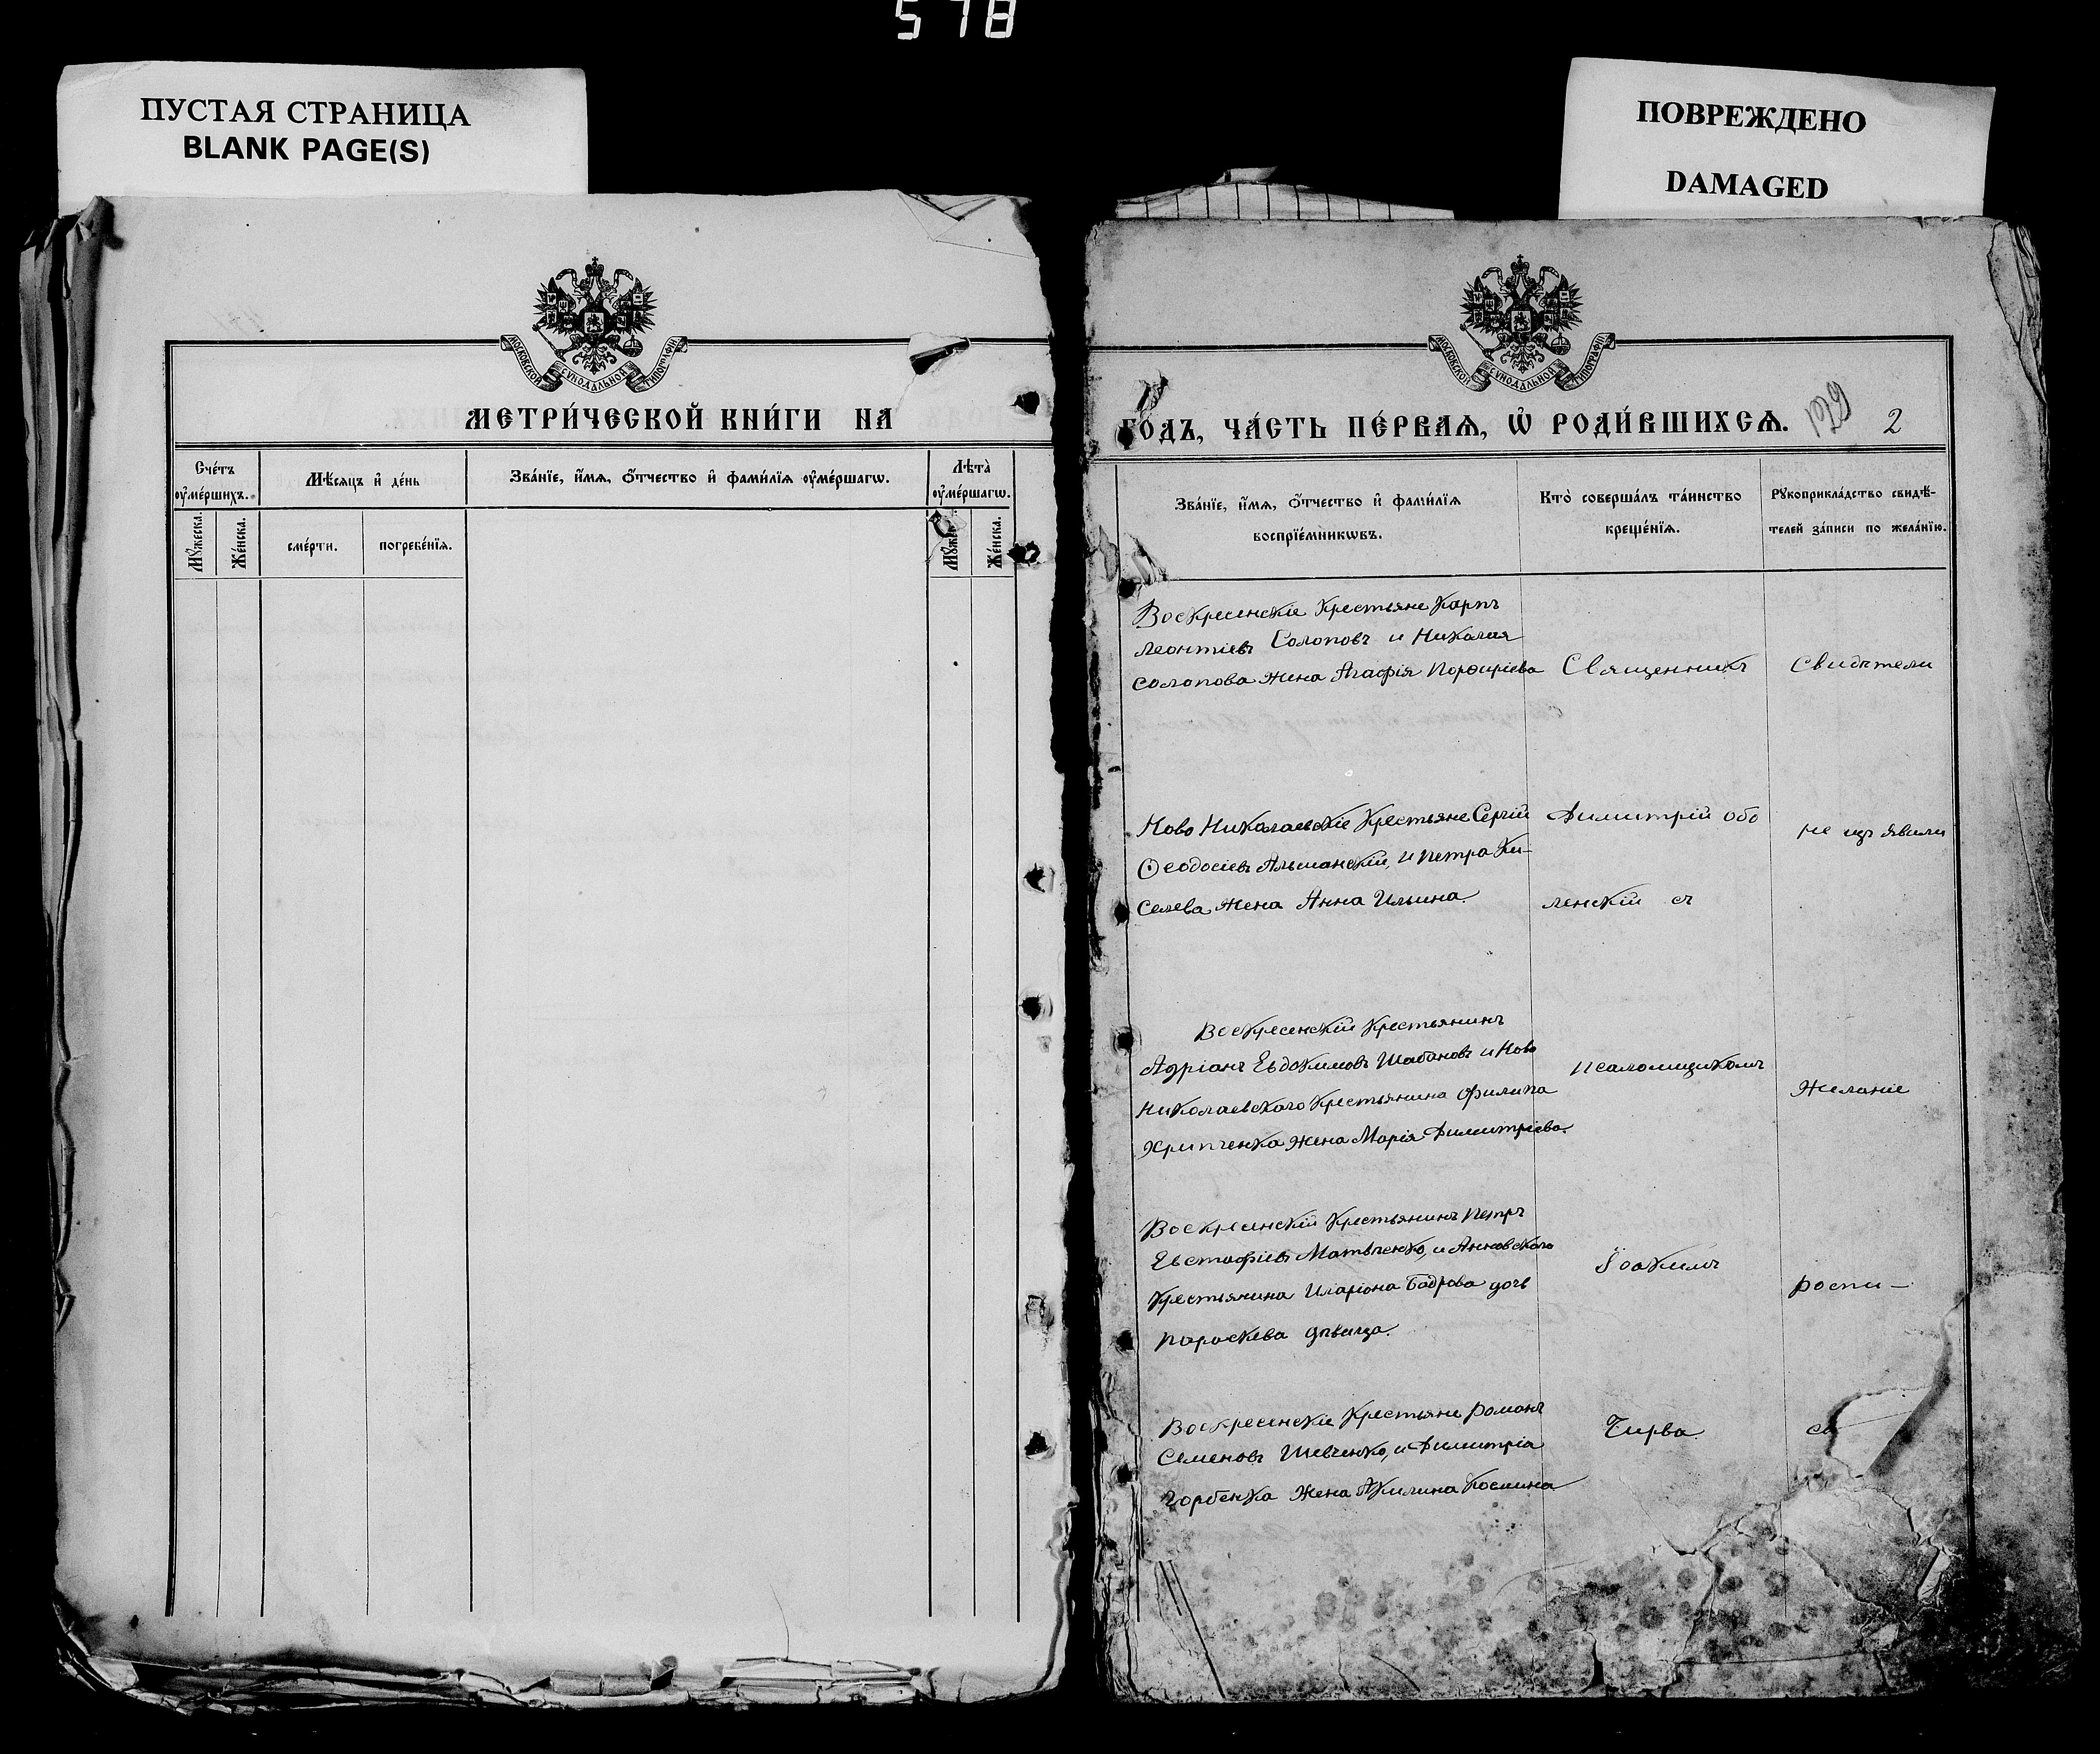 578
ПУСТАЯ СТРАНИЦА
BLANK PAGE(S)
ПОВРЕЖДЕНО
DAMAGED
МОСКОВСКОЙ СѴНОДАЛЬНОЙ ТИПОГРАФІИ
МЕТРИ́ЧЕСКОЙ КНИ́ГИ НА
Сче́тъ ᲂу҆ме́ршихъ.
Мѣ́сяцъ и҆ де́нь
Зва́нїе, и҆́мѧ, ѻ҆́тчество и҆ фами́лїѧ ᲂу҆ме́ршагѡ.
Лѣ́та ᲂу҆ме́ршагѡ.
Мꙋ́жеска.
Же́нска.
сме́рти.
погребе́нїѧ.
Же́нска.
МОСКОВСКОЙ СѴНОДАЛЬНОЙ ТИПОГРАФІИ
ГО́ДЪ, ЧА́СТЬ ПЕ́РВАѦ, Ѽ РОДИ́ВШИХСѦ.
2
Зва́нїе, и҆́мѧ, ѻ҆́тчество и҆ фами́лїѧ
воспрїе́мникѡвъ.
Кто̀ соверша́лъ та́инство
креще́нїѧ.
Рꙋкоприкла́дство свидѣ́-
телей за́писи по жела́нїю.
Воскресенскіе Крестьяне Карпъ
Леонтіевъ Солоповъ и Николая
Солопова жена Агафія Порфиріева
Священникъ
Свидѣтели
Ново Николаевскіе Крестьяне Сергій
Ѳеодосіевъ Альшанскій, и Петра Ки-
селева жена Анна Ильина.
Димитрій Обо
ленскій съ
не изъявили
Воскресенскій Крестьянинъ
Адріанъ Евдокимовъ Шабановъ и Ново
Николаевскаго Крестьянина Филипа
Хрипченка жена Марія Димитріева.
псаломщикомъ
желаніе
Воскресенскій Крестьянинъ Петръ
Евстафіевъ Матвѣенко, и Анновскаго
Крестьянина Иларіона Бодрова дочь
Параскева дѣвица.
Іоакимъ
роспи-
Воскресенскіе Крестьяне Романъ
Семеновъ Шевченко, и Димитрія
Горбенка жена Акилина Косьмина
Чирва